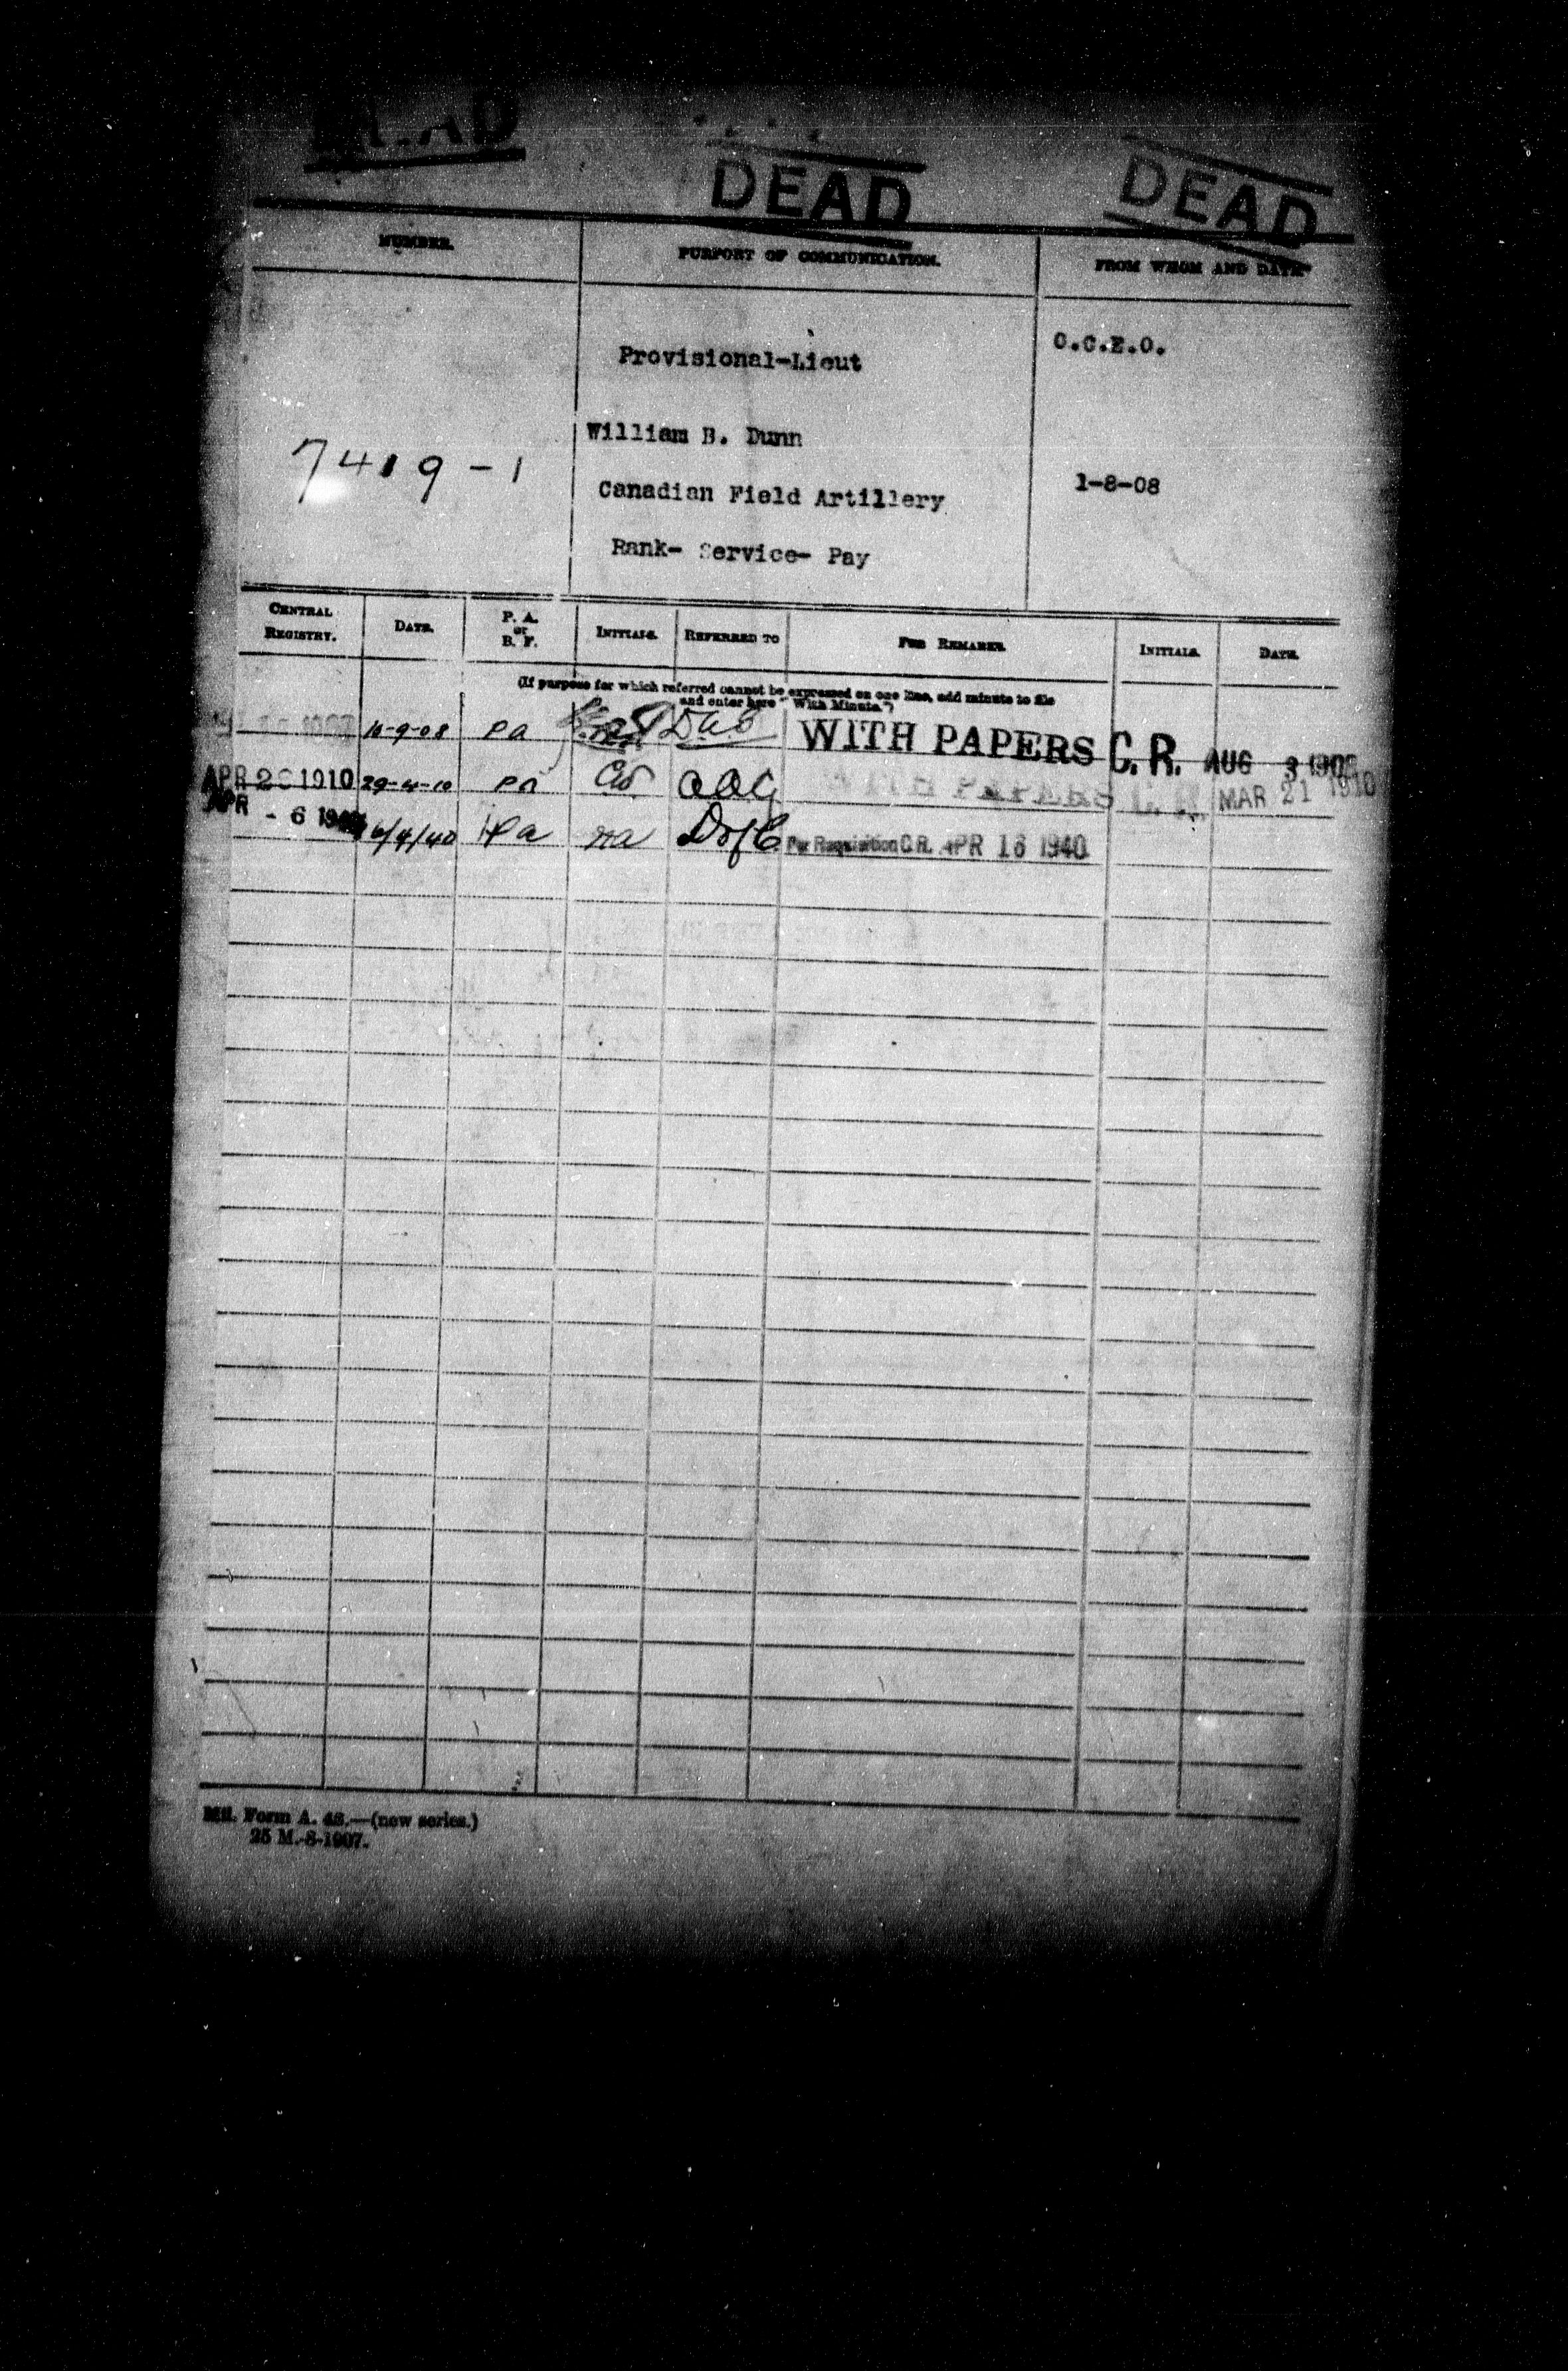 DEAD
DEAD
NUMBER.
PURPORT OF COMMUNICATION.
FROM WHOM AND DATE.
Provisional-Lieut
C.C.E.O.
William B. Dunn
7419-1
Canadian Field Artillery
1-8-08
Rank- Service- Pay
CENTRAL REGISTRY.
DATE.
P. A. or B. F.
INITIALS.
REFERRED TO
FOR REMARKS.
INITIALS.
DATE.
(If purpose for which referred cannot be expressed on one line, add minute to file
and enter here "With Minute.")
10-9-08 Pa WITH PAPERS C.R. AUG 3 1908
APR 1910 29-4-10 Pa AAG WITH PAPERS C.R. MAR 21 1910
APR - 6 1940 Pa Per Requisition C.R. APR 16 1940
Mil. Form A. 48.—(new series.)
25 M.-8-1907.